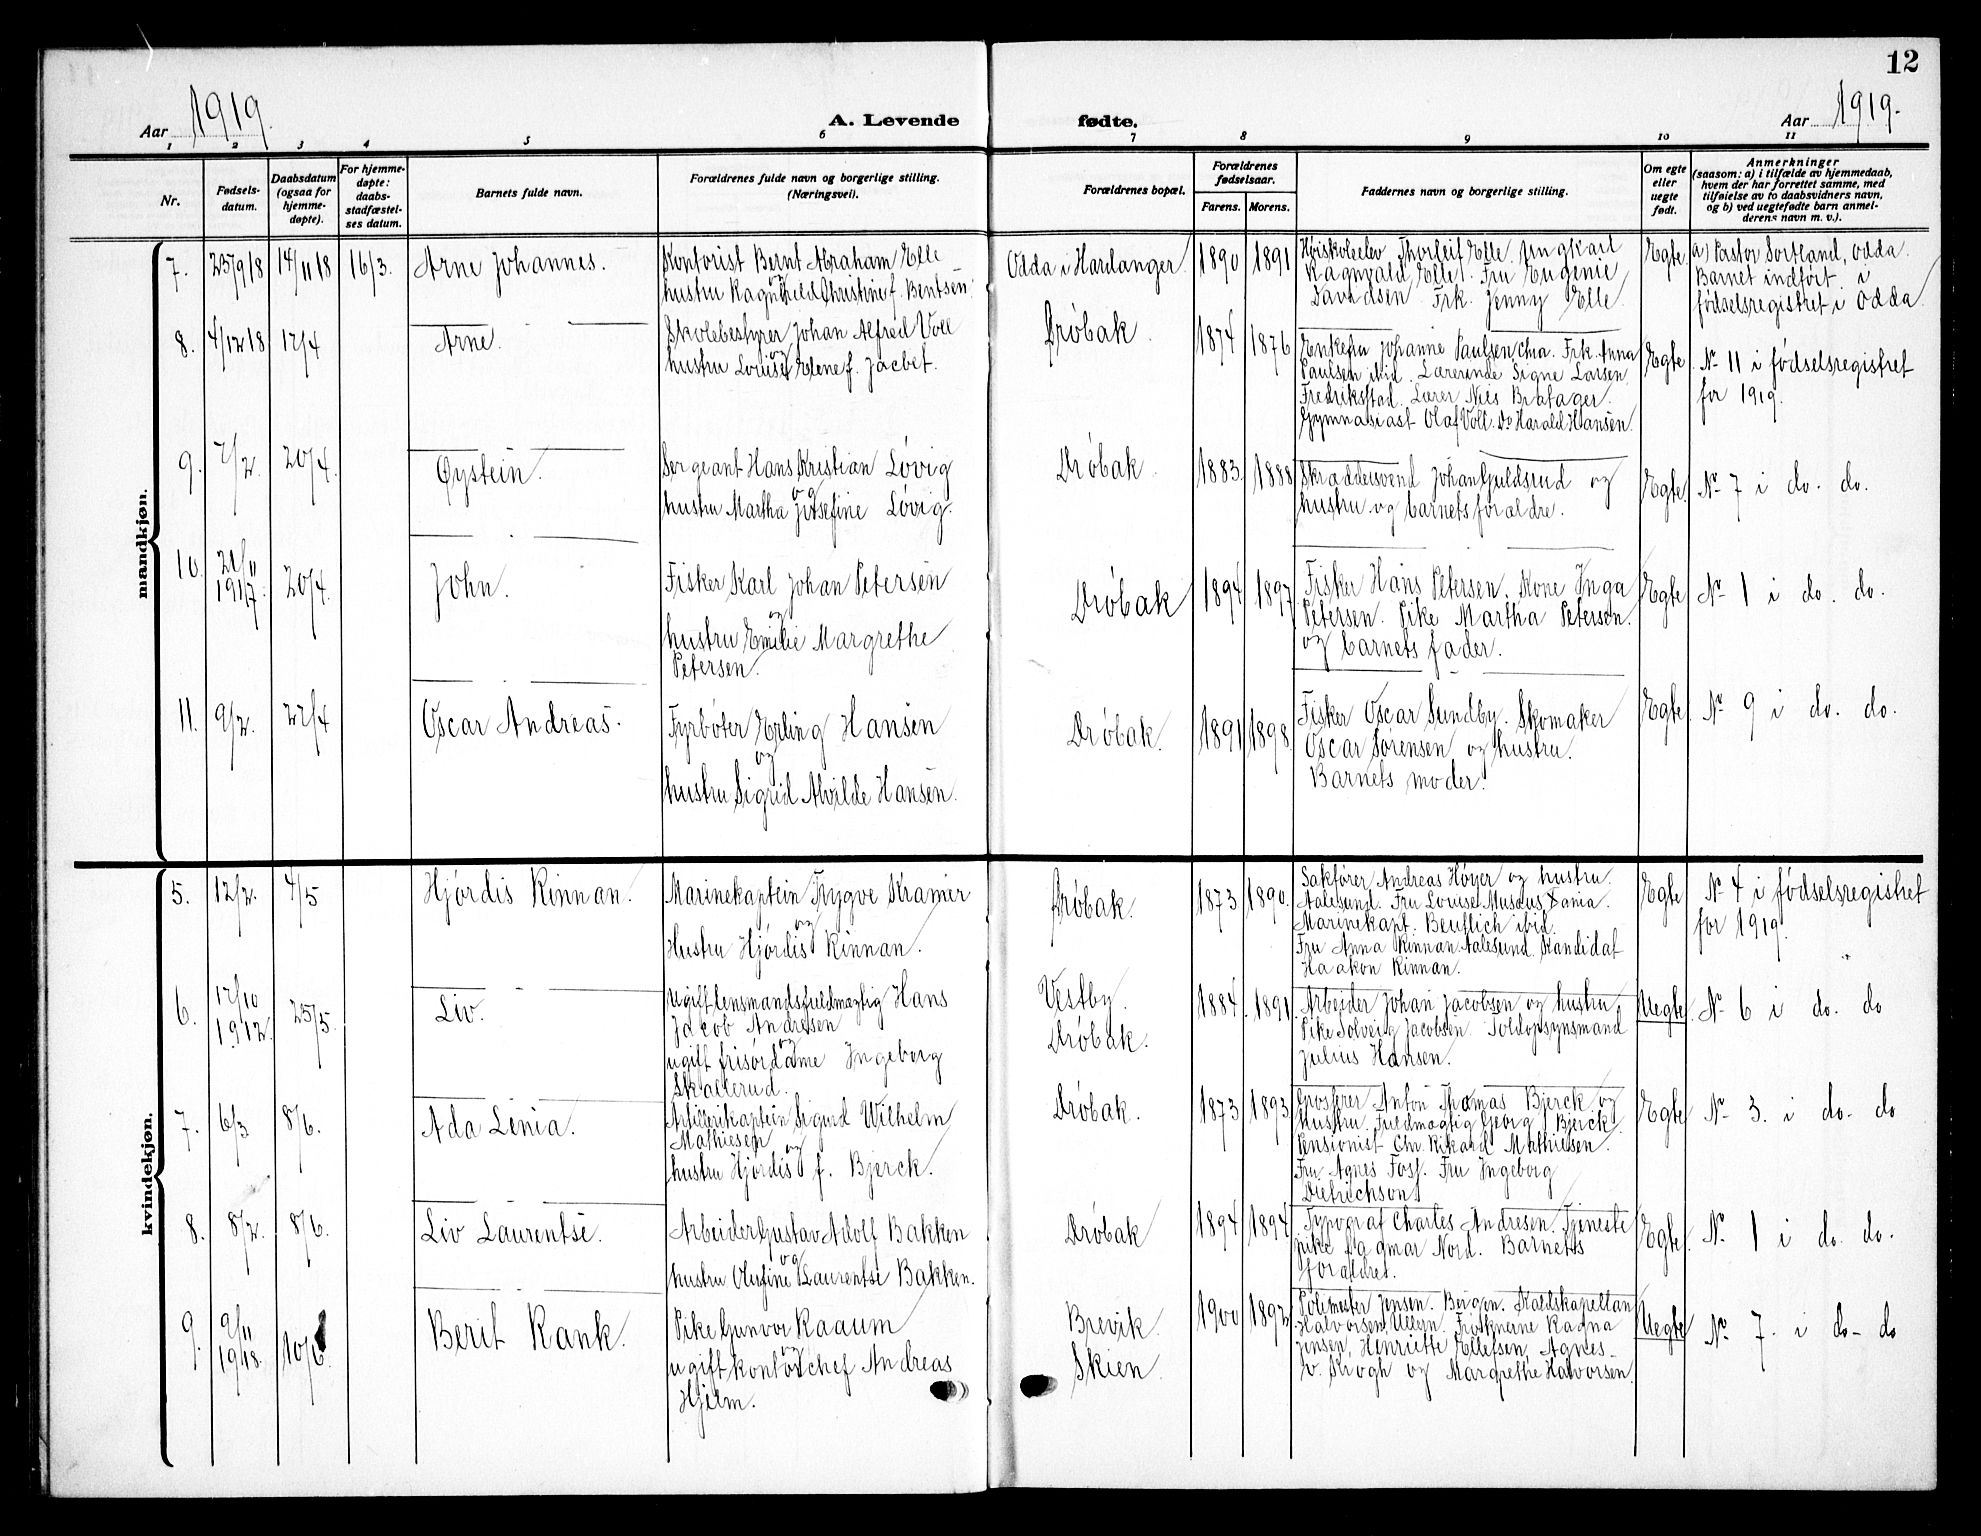 12
Aar 1919.
A. Levende
fødte.
Aar 1919.
1 2 3 4 5 6 7 8 9 10 11
Nr.
Fødsels-
datum.
Daabsdatum
(ogsaa for
hjemme-
døpte).
For hjemme-
døpte:
daabs-
stadfæstel-
ses datum.
Barnets fulde navn.
Forældrenes fulde navn og borgerlige stilling.
(Næringsvei).
Forældrenes bopæl.
Forældrenes
fødselsaar.
Farens. Morens.
Faddernes navn og borgerlige stilling.
Om egte
eller
uegte
født.
Anmerkninger
(saasom: a) i tilfælde av hjemmedaab,
hvem der har forrettet samme, med
tilføielse av to daabsvidners navn,
og b) ved uegtefødte barn anmel-
derens navn m. v.).
mandkjøn.
7. 23/9 18 14/11 18 16/3. Arne Johannes.
Kontorist Bernt Abraham Elle
og
hustru Ragnhild Christine f. Bentsen.
Odda i Hardanger. 1890 1891
Høiskoleelev Thorleif Elle. Ungkarl
Ragnvald Elle. Fru Eugenie
Davidsen Frk. Jenny Elle.
Egte
a) Pastor Sortland, Odda.
Barnet indført i
fødselsregistret i Odda.
8. 4/12 18 12/4 Arne.
Skolebestyrer Johan Alfred Voll
og
hustru Louise Elene f. Jacbet.
Drøbak. 1874 1876
Enkefru Johanne Paulsen, Chra. Frk. Anna
Paulsen ibid. Lærerinde Signe Larsen,
Fredriksstad. Lærer Nils Bratager.
Gymnasiast Olaf Voll. Do Harald Hansen.
Egte
Nr 11 i fødselsregistret
for 1919.
9. 7/2. 20/4. Øystein.
Sergeant Hans Kristian Løvig
og
hustru Martha Josefine Løvig.
Drøbak. 1883. 1888
Skræddersvend Johan Guldsrud og
hustru og barnets forældre.
Egte.
Nr 7 i do. do.
10. 21/11
1917. 20/4. John.
Fisker Karl Johan Petersen
og
hustru Emilie Margrethe
Petersen.
Drøbak 1894 1897
Fisker Hans Petersen. Kone Inga
Petersen. Pike Martha Peterson.
og barnets fader.
Egte
Nr 1 i do. do.
11. 9/2. 22/4 Oscar Andreas.
Fyrbøter Erling Hansen
og
hustru Sigrid Alvilde Hansen.
Drøbak. 1891 1898.
Fisker Oscar Sundby. Skomaker
Oscar Sørensen og hustru.
Barnets moder.
Egte
Nr 9 i do. do.
kvindekjøn.
5. 12/2. 4/5 Hjørdis Rinnan.
Marinekaptein Trygve Kramer
og
Hustru Hjørdis Rinnan.
Drøbak. 1873 1890.
Sakfører Andreas Høyer og hustru.
Aalesund. Fru Louise Musæus
Marinekapt. Beutlich ibid.
Fru Anna Rinnan Aalesund. Kandidat
Haakon Rinnan.
Egte
Nr 4 i fødselsregistret
for 1919.
6. 17/10
1912. 25/5. Liv.
Ugift lensmandsfuldmægtig Hans
Jacob Andresen
og
ugift frisørdame Ingeborg
Skallerud.
Vestby.
Drøbak. 1884. 1891.
Arbeider Johan Jacobsen og hustru.
Pike Solveig Jacobsen. Toldopsynsmand
Julius Hansen.
Uegte
Nr 6 i do. do
7. 6/3 8/6. Ada Lenia.
Artillerikaptein Sigurd Wilhelm
Mathiesen
og
hustru Hjørdis f. Bjerck.
Drøbak. 1873 1893
Grosserer Anton Thomas Bjerck og
Hustru. Fuldmægtig Georg J Bjerck.
Pensionist Chr. Rikard Mathiesen
Fru Agnes Foss. Fru Ingeborg
Dietrichson.
Egte
Nr 3. i do. do
8. 8/2. 8/6. Liv Laurentse.
Arbeider Gustav Adolf Bakken
og
hustru Olufine Laurentse Bakken.
Drøbak 1894 1894
Typograf Charles Andresen. Tjeneste
pike Dagmar Nord. Barnets
forældre.
Egte.
Nr 1 i do. do.
9. 9/11
1918. 10/6. Berit Rank.
Pike Gunvor Raaum
og
ugift kontorchef Andreas
Hjelm.
Brevik.
Skien 1900 1892
Politimester Jensen. Bergen. Kaldskapellan
Halvorsen, Ullern. Frøknerne Ragna
Jensen, Henriette Ellefsen, Agnes
v. Krogh og Margrethe Halvorsen.
Uegte
Nr 7. i do- do